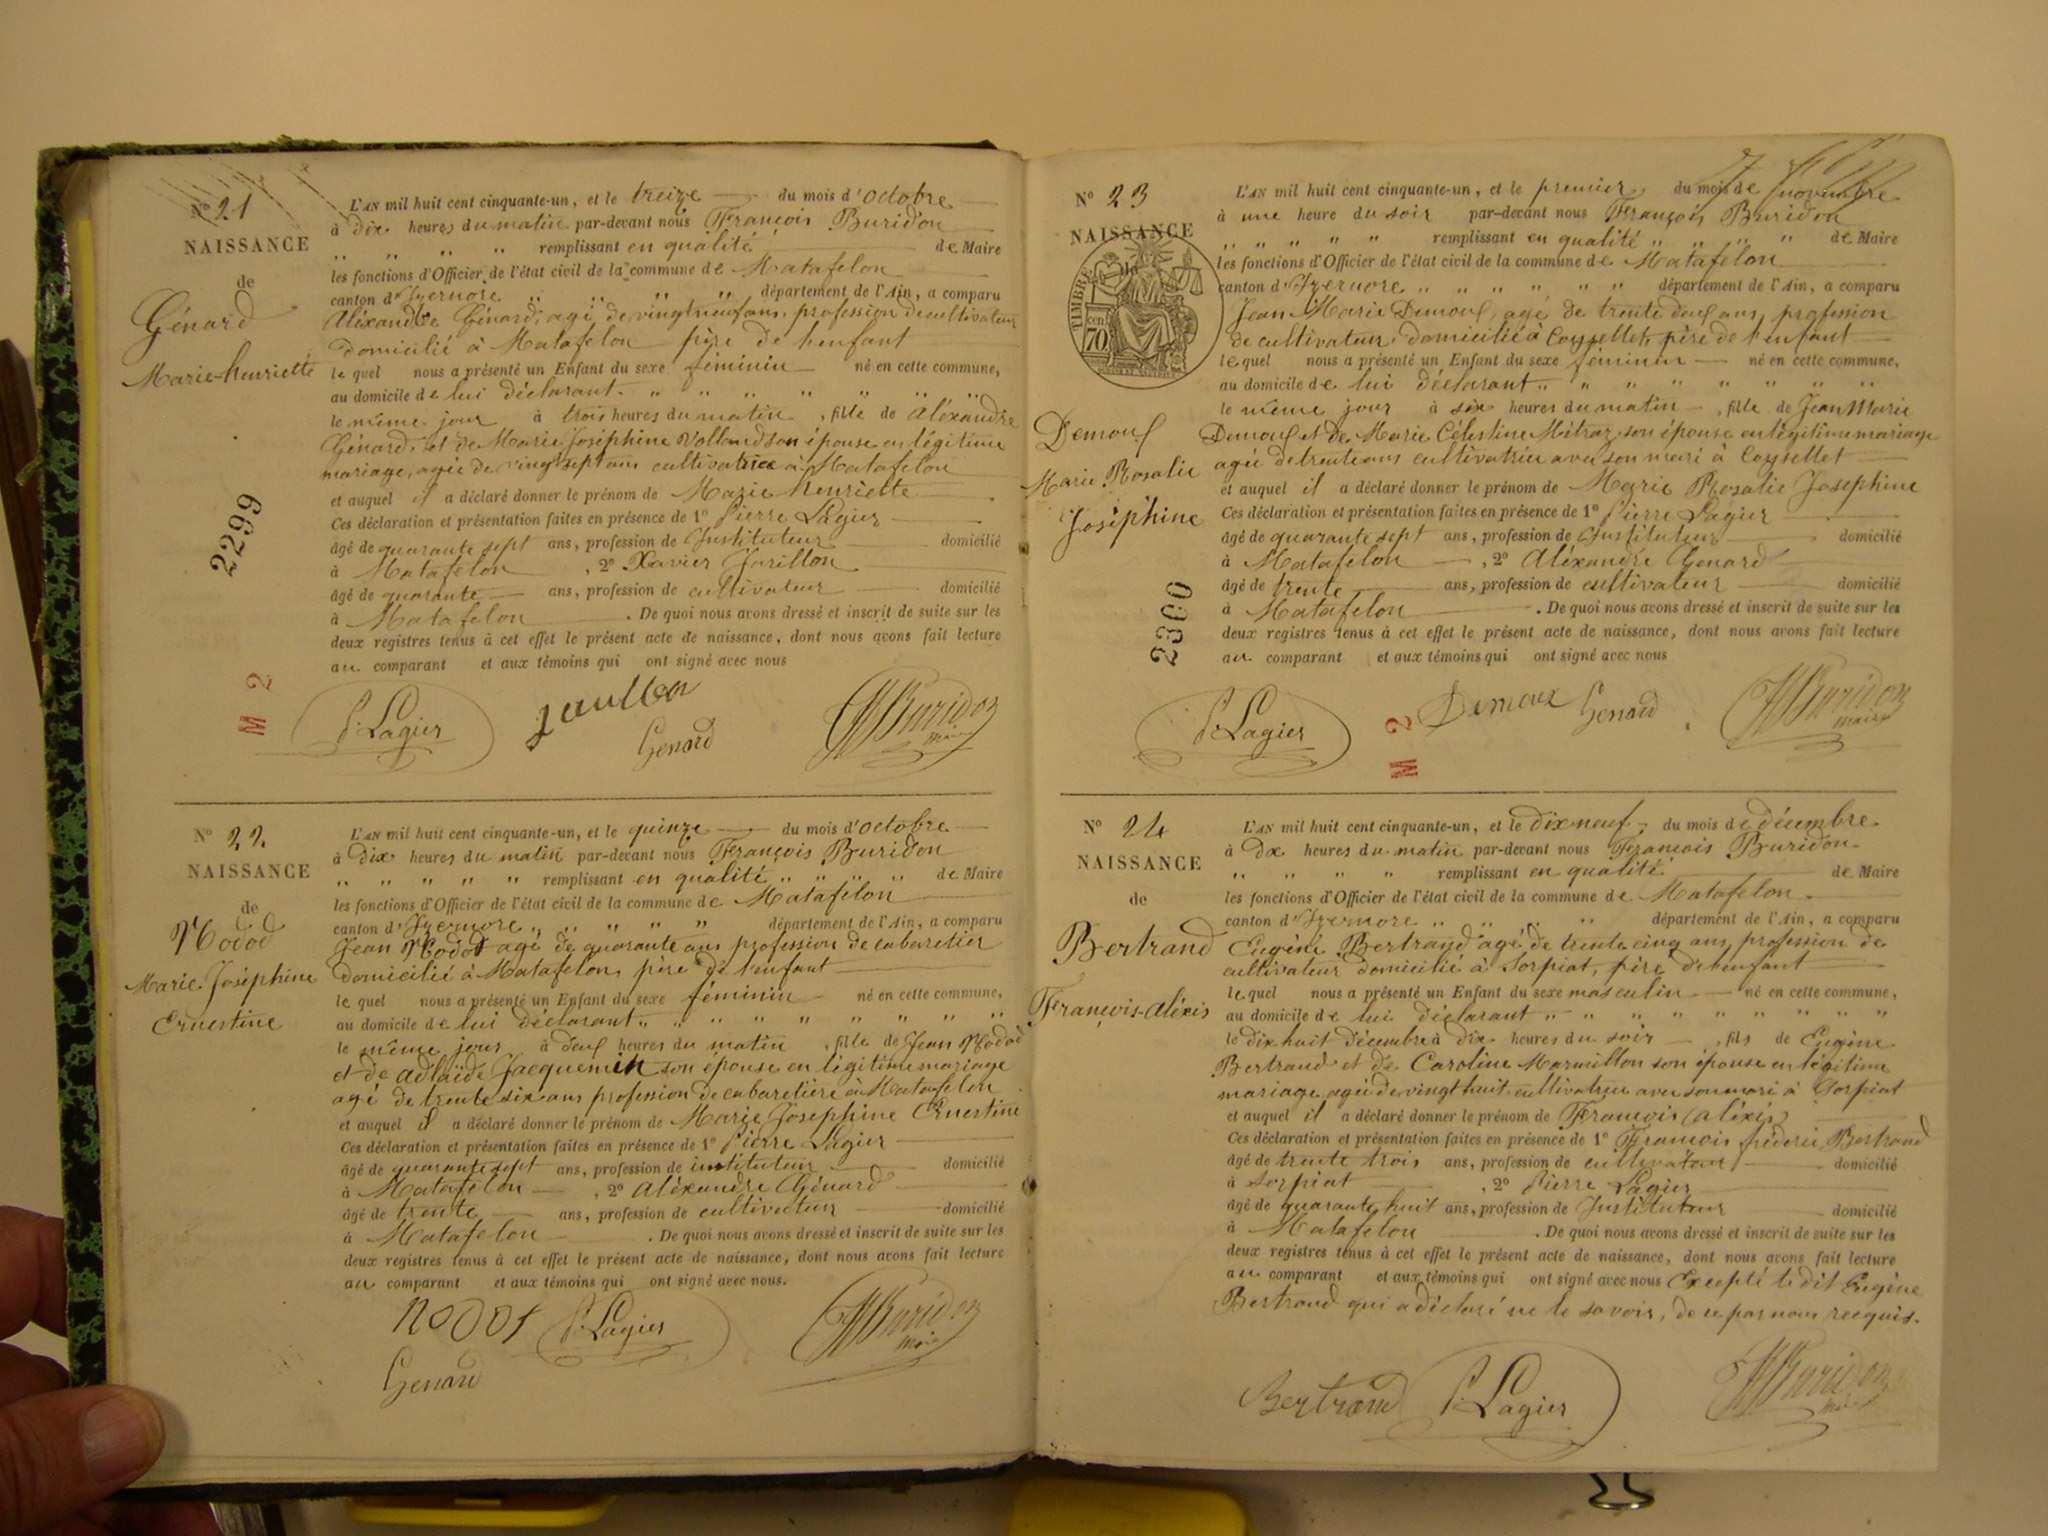 N° 21
NAISSANCE
de
Génard
Marie-henriette
2299
M 2
L'AN mil huit cent cinquante-un, et le treize du mois d'octobre
à dix heures du matin par-devant nous François Buridon
" " " " remplissant en qualité de Maire
les fonctions d'Officier de l'état civil de la commune de Matafelon
canton d'Izernore " " " " département de l'Ain, a comparu
Aléxandre Génard, agé de vingt neuf ans, profession de cultivateur
domicilié à Matafelon père de l'enfant
le quel nous a présenté un Enfant du sexe féminin né en cette commune,
au domicile de lui déclarant " " " " " "
le même jour à trois heures du matin, fille de Aléxandre
Génard, et de Marie Joséphine son épouse en légitime
mariage, agée de vingt sept ans cultivatrice à Matafelon
et auquel il a déclaré donner le prénom de Marie henriette
Ces déclaration et présentation faites en présence de 1° Pierre Lagier
âgé de quarante sept ans, profession de Instituteur domicilié
à Matafelon, 2° Xavier
âgé de quarante ans, profession de cultivateur domicilié
à Matafelon. De quoi nous avons dressé et inscrit de suite sur les
deux registres tenus à cet effet le présent acte de naissance, dont nous avons fait lecture
au comparant et aux témoins qui ont signé avec nous
P. Lagier Buridon
Genard maire
N° 22
NAISSANCE
de
Nodot
Marie Joséphine
Ernestine
L'AN mil huit cent cinquante-un, et le quinze du mois d'octobre
à dix heures du matin par-devant nous François Buridon
" " " " " remplissant en qualité " " " " de Maire
les fonctions d'Officier de l'état civil de la commune de Matafelon
canton d'Izernore " " " " " département de l'Ain, a comparu
Jean Nodot agé de quarante ans profession de cabaretier
domicilié à Matafelon, père de l'enfant
le quel nous a présenté un Enfant du sexe féminin né en cette commune,
au domicile de lui déclarant " " " " " " " " "
le même jour à deux heures du matin, fille de Jean Nodot
et de adlaïde Jacquemin son épouse en légitime mariage
agé de trente six ans profession de cabaretière à Matafelon
et auquel il a déclaré donner le prénom de Marie Joséphine Ernestine
Ces déclaration et présentation faites en présence de 1° Pierre Lagier
âgé de quarante sept ans, profession de instituteur domicilié
à Matafelon, 2° Aléxandre Génard
âgé de trente ans, profession de cultivateur domicilié
à Matafelon. De quoi nous avons dressé et inscrit de suite sur les
deux registres tenus à cet effet le présent acte de naissance, dont nous avons fait lecture
au comparant et aux témoins qui ont signé avec nous.
nodot P. Lagier Buridon
Genard maire
N° 23
NAISSANCE
TIMBRE
70 cen
Demoux
Marie Rosalie
Joséphine
2300
M 2
L'AN mil huit cent cinquante-un, et le premier du mois de novembre
à une heure du soir par-devant nous François Buridon
" " " " " remplissant en qualité " " " " de Maire
les fonctions d'Officier de l'état civil de la commune de Matafelon
canton d'Izernore " " " " " " département de l'Ain, a comparu
Jean Marie Demoux, agé de trente deux ans, profession
de cultivateur domicilié à Coyssellet, père de l'enfant
le quel nous a présenté un Enfant du sexe féminin né en cette commune,
au domicile de lui déclarant " " " " " " " "
le même jour à six heures du matin, fille de Jean Marie
Demoux et de Marie Célestine Mitraz son épouse en légitime mariage
agée de trente ans cultivatrice avec son mari à Coyssellet
et auquel il a déclaré donner le prénom de Marie Rosalie Joséphine
Ces déclaration et présentation faites en présence de 1° Pierre Lagier
âgé de quarante sept ans, profession de Instituteur domicilié
à Matafelon, 2° Aléxandre Genard
âgé de trente ans, profession de cultivateur domicilié
à Matafelon. De quoi nous avons dressé et inscrit de suite sur les
deux registres tenus à cet effet le présent acte de naissance, dont nous avons fait lecture
au comparant et aux témoins qui ont signé avec nous
P. Lagier Demoux Genard Buridon
maire
N° 24
NAISSANCE
de
Bertrand
François-Aléxis
L'AN mil huit cent cinquante-un, et le dix neuf du mois de décembre
à dix heures du matin par-devant nous François Buridon
" " " " remplissant en qualité de Maire
les fonctions d'Officier de l'état civil de la commune de Matafelon
canton d'Izernore " " " " département de l'Ain, a comparu
Eugène Bertrand agé de trente cinq ans, profession de
cultivateur domicilié à Sorpiat, père de l'enfant
le quel nous a présenté un Enfant du sexe masculin né en cette commune,
au domicile de lui déclarant " " " " " " " " "
le dix huit décembre à dix heures du soir, fils de Eugène
Bertrand et de Caroline Marmillon son épouse en légitime
mariage agée de vingt huit cultivatrice avec son mari à Sorpiat
et auquel il a déclaré donner le prénom de François (aléxis)
Ces déclaration et présentation faites en présence de 1° François fréderic Bertrand
âgé de trente trois ans, profession de cultivateur domicilié
à Sorpiat, 2° Pierre Lagier
âgé de quarante huit ans, profession de Instituteur domicilié
à Matafelon. De quoi nous avons dressé et inscrit de suite sur les
deux registres tenus à cet effet le présent acte de naissance, dont nous avons fait lecture
au comparant et aux témoins qui ont signé avec nous Excepté le dit Eugène
Bertrand qui a déclaré ne le savoir, de ce par nous requis.
Bertrand P. Lagier Buridon